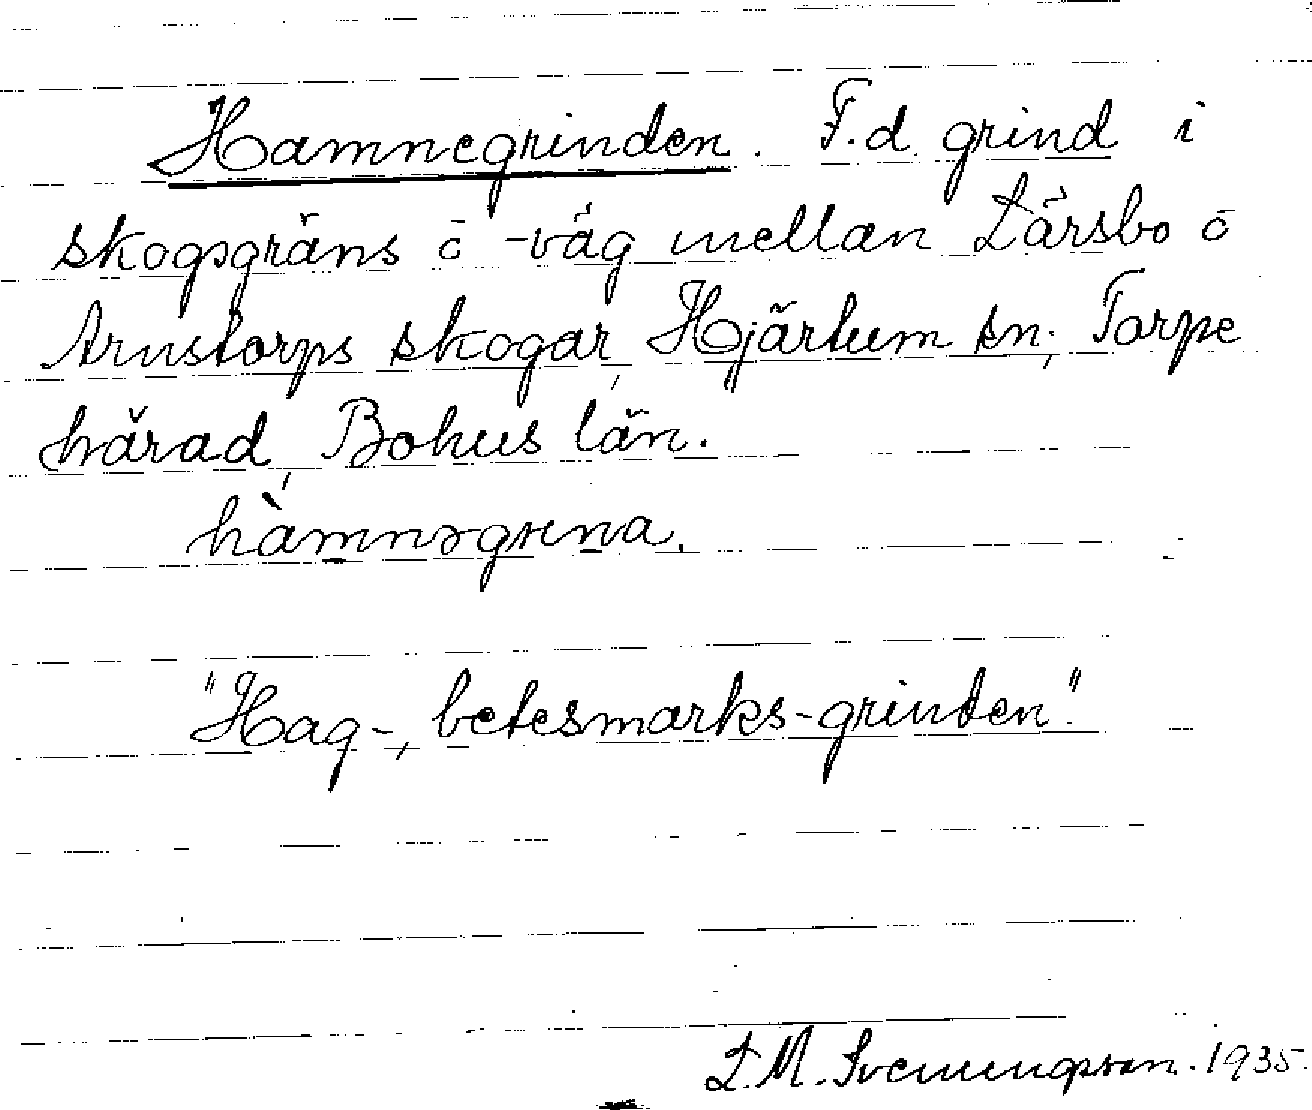 Hamnegrinden. F.d. grind i
skogsgräns ō -väg mellan Lärsbo ō
Arnstorps skogar, Hjärtum sn; Torpe
härad, Bohus län.
hàmnəgrına.
"Hag-, betesmarks-grinden".
L.M. Svenungsson. 1935.